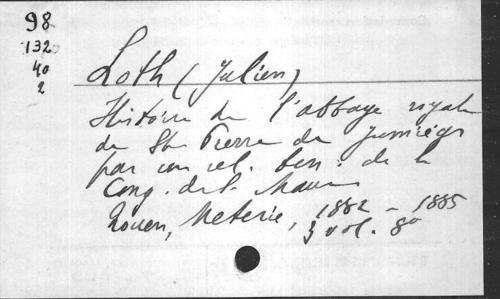 98
132
40
2
Loth (Julien)
Histoire de l'abbaye royale
de St. Pierre de Jumièges
par un rel. ben. de la
Cong. de St. Maur
Rouen, Meterie, 1882 - 1885
3 vol. 8o